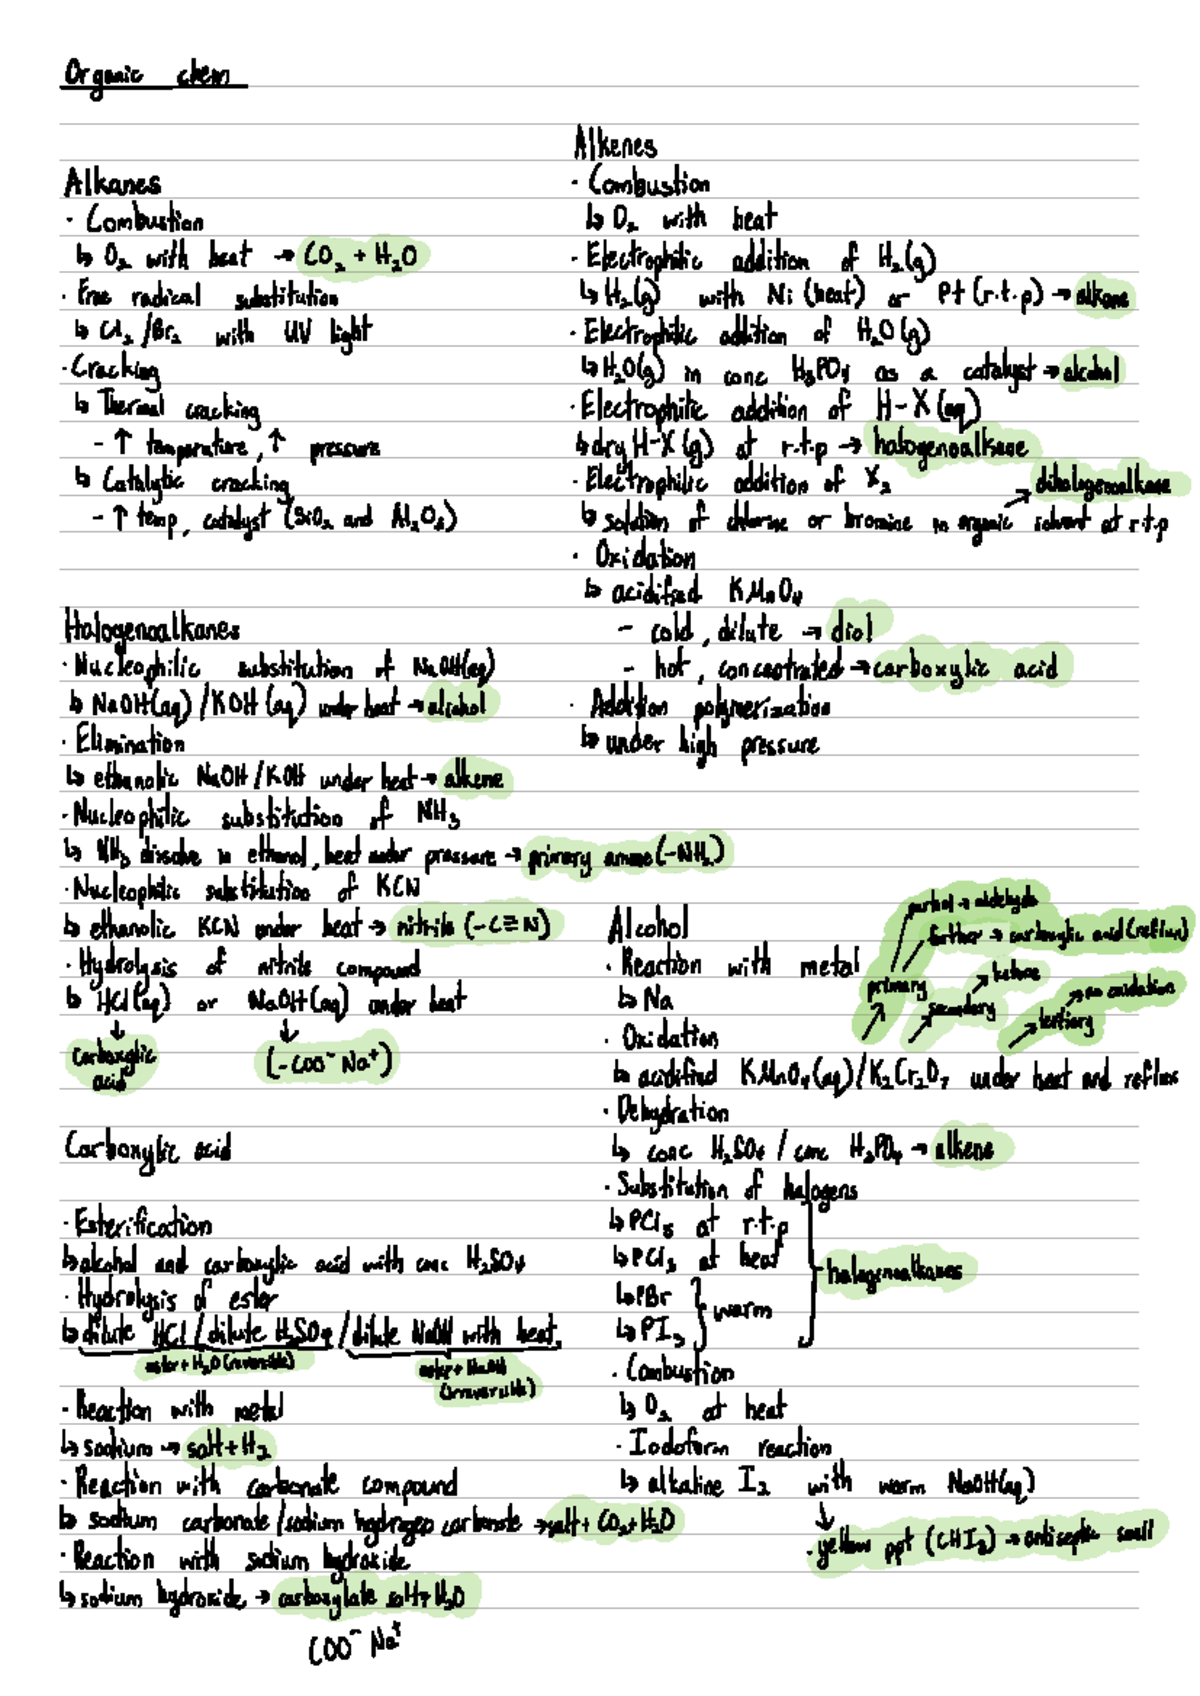 Organic chem
Alkanes
· Combustion
↳ O₂ with heat → CO₂ + H₂O
· Free radical substitution
↳ Cl₂ /Br₂ with UV light
· Cracking
↳ Thermal cracking
- ↑ temperature, ↑ pressure
↳ Catalytic cracking
- ↑ temp, catalyst (SiO₂ and Al₂O₃)
Halogenoalkanes
· Nucleophilic substitution of NaOH(aq)
↳ NaOH(aq) /KOH (aq) under heat → alcohol
· Elimination
↳ ethanolic NaOH/KOH under heat → alkene
· Nucleophilic substitution of NH₃
↳ NH₃ dissolve in ethanol, heat under pressure → primary amine (-NH₂)
· Nucleophilic substitution of KCN
↳ ethanolic KCN under heat → nitrile (-C≡N)
· Hydrolysis of nitrile compound
↳ HCl(aq) or NaOH(aq) under heat
↓ ↓
carboxylic acid (-COO⁻ Na⁺)
Carboxylic acid
· Esterification
↳ alcohol and carboxylic acid with conc H₂SO₄
· Hydrolysis of ester
↳ dilute HCl / dilute H₂SO₄ / dilute NaOH with heat.
ester + H₂O (reversible) ester + NaOH
(irreversible)
· Reaction with metal
↳ sodium → salt + H₂
· Reaction with carbonate compound
↳ sodium carbonate /sodium hydrogen carbonate → salt + CO₂ + H₂O
· Reaction with sodium hydroxide
↳ sodium hydroxide → carboxylate salt + H₂O
COO⁻ Na⁺
Alkenes
· Combustion
↳ O₂ with heat
· Electrophilic addition of H₂(g)
↳ H₂(g) with Ni (heat) or Pt (r.t.p) → alkane
· Electrophilic addition of H₂O(g)
↳ H₂O(g) in conc H₃PO₄ as a catalyst → alcohol
· Electrophilic addition of H-X (aq)
↳ dry H-X (g) at r.t.p → halogenoalkane
· Electrophilic addition of X₂
→ dihalogenoalkane
↳ solution of chlorine or bromine in organic solvent at r.t.p
· Oxidation
↳ acidified KMnO₄
- cold, dilute → diol
- hot, concentrated → carboxylic acid
· Addition polymerization
↳ under high pressure
Alcohol
· Reaction with metal
↳ Na
· Oxidation
partial → aldehyde
further → carboxylic acid (reflux)
primary
secondary → ketone
tertiary → no oxidation
↳ acidified KMnO₄(aq)/K₂Cr₂O₇ under heat and reflux
· Dehydration
↳ conc H₂SO₄ / conc H₃PO₄ → alkene
· Substitution of halogens
↳ PCl₅ at r.t.p
↳ PCl₃ at heat
↳ PBr
↳ PI₃
} warm
} halogenoalkanes
· Combustion
↳ O₂ at heat
· Iodoform reaction
↳ alkaline I₂ with warm NaOH(aq)
↓
· yellow ppt (CHI₃) → antiseptic smell